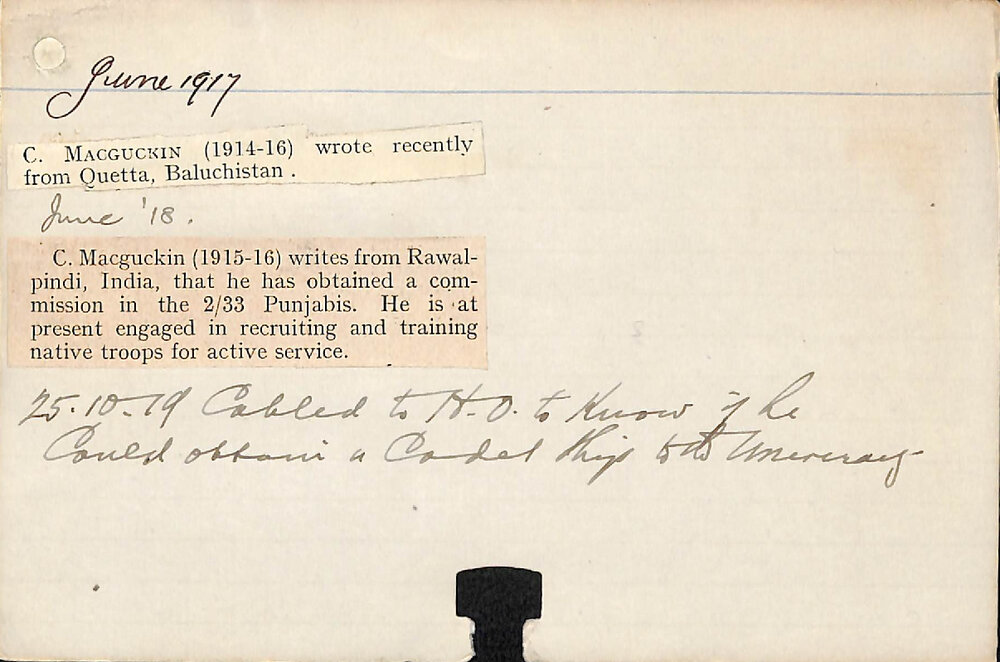 June 1917
C. MACGUCKIN (1914-16) wrote recently
from Quetta, Baluchistan .
June '18.
C. Macguckin (1915-16) writes from Rawal-
pindi, India, that he has obtained a com-
mission in the 2/33 Punjabis. He is at
present engaged in recruiting and training
native troops for active service.
25.10.19 Cabled to H.O. to Know if he
Could obtain a Cadet Ship to the University